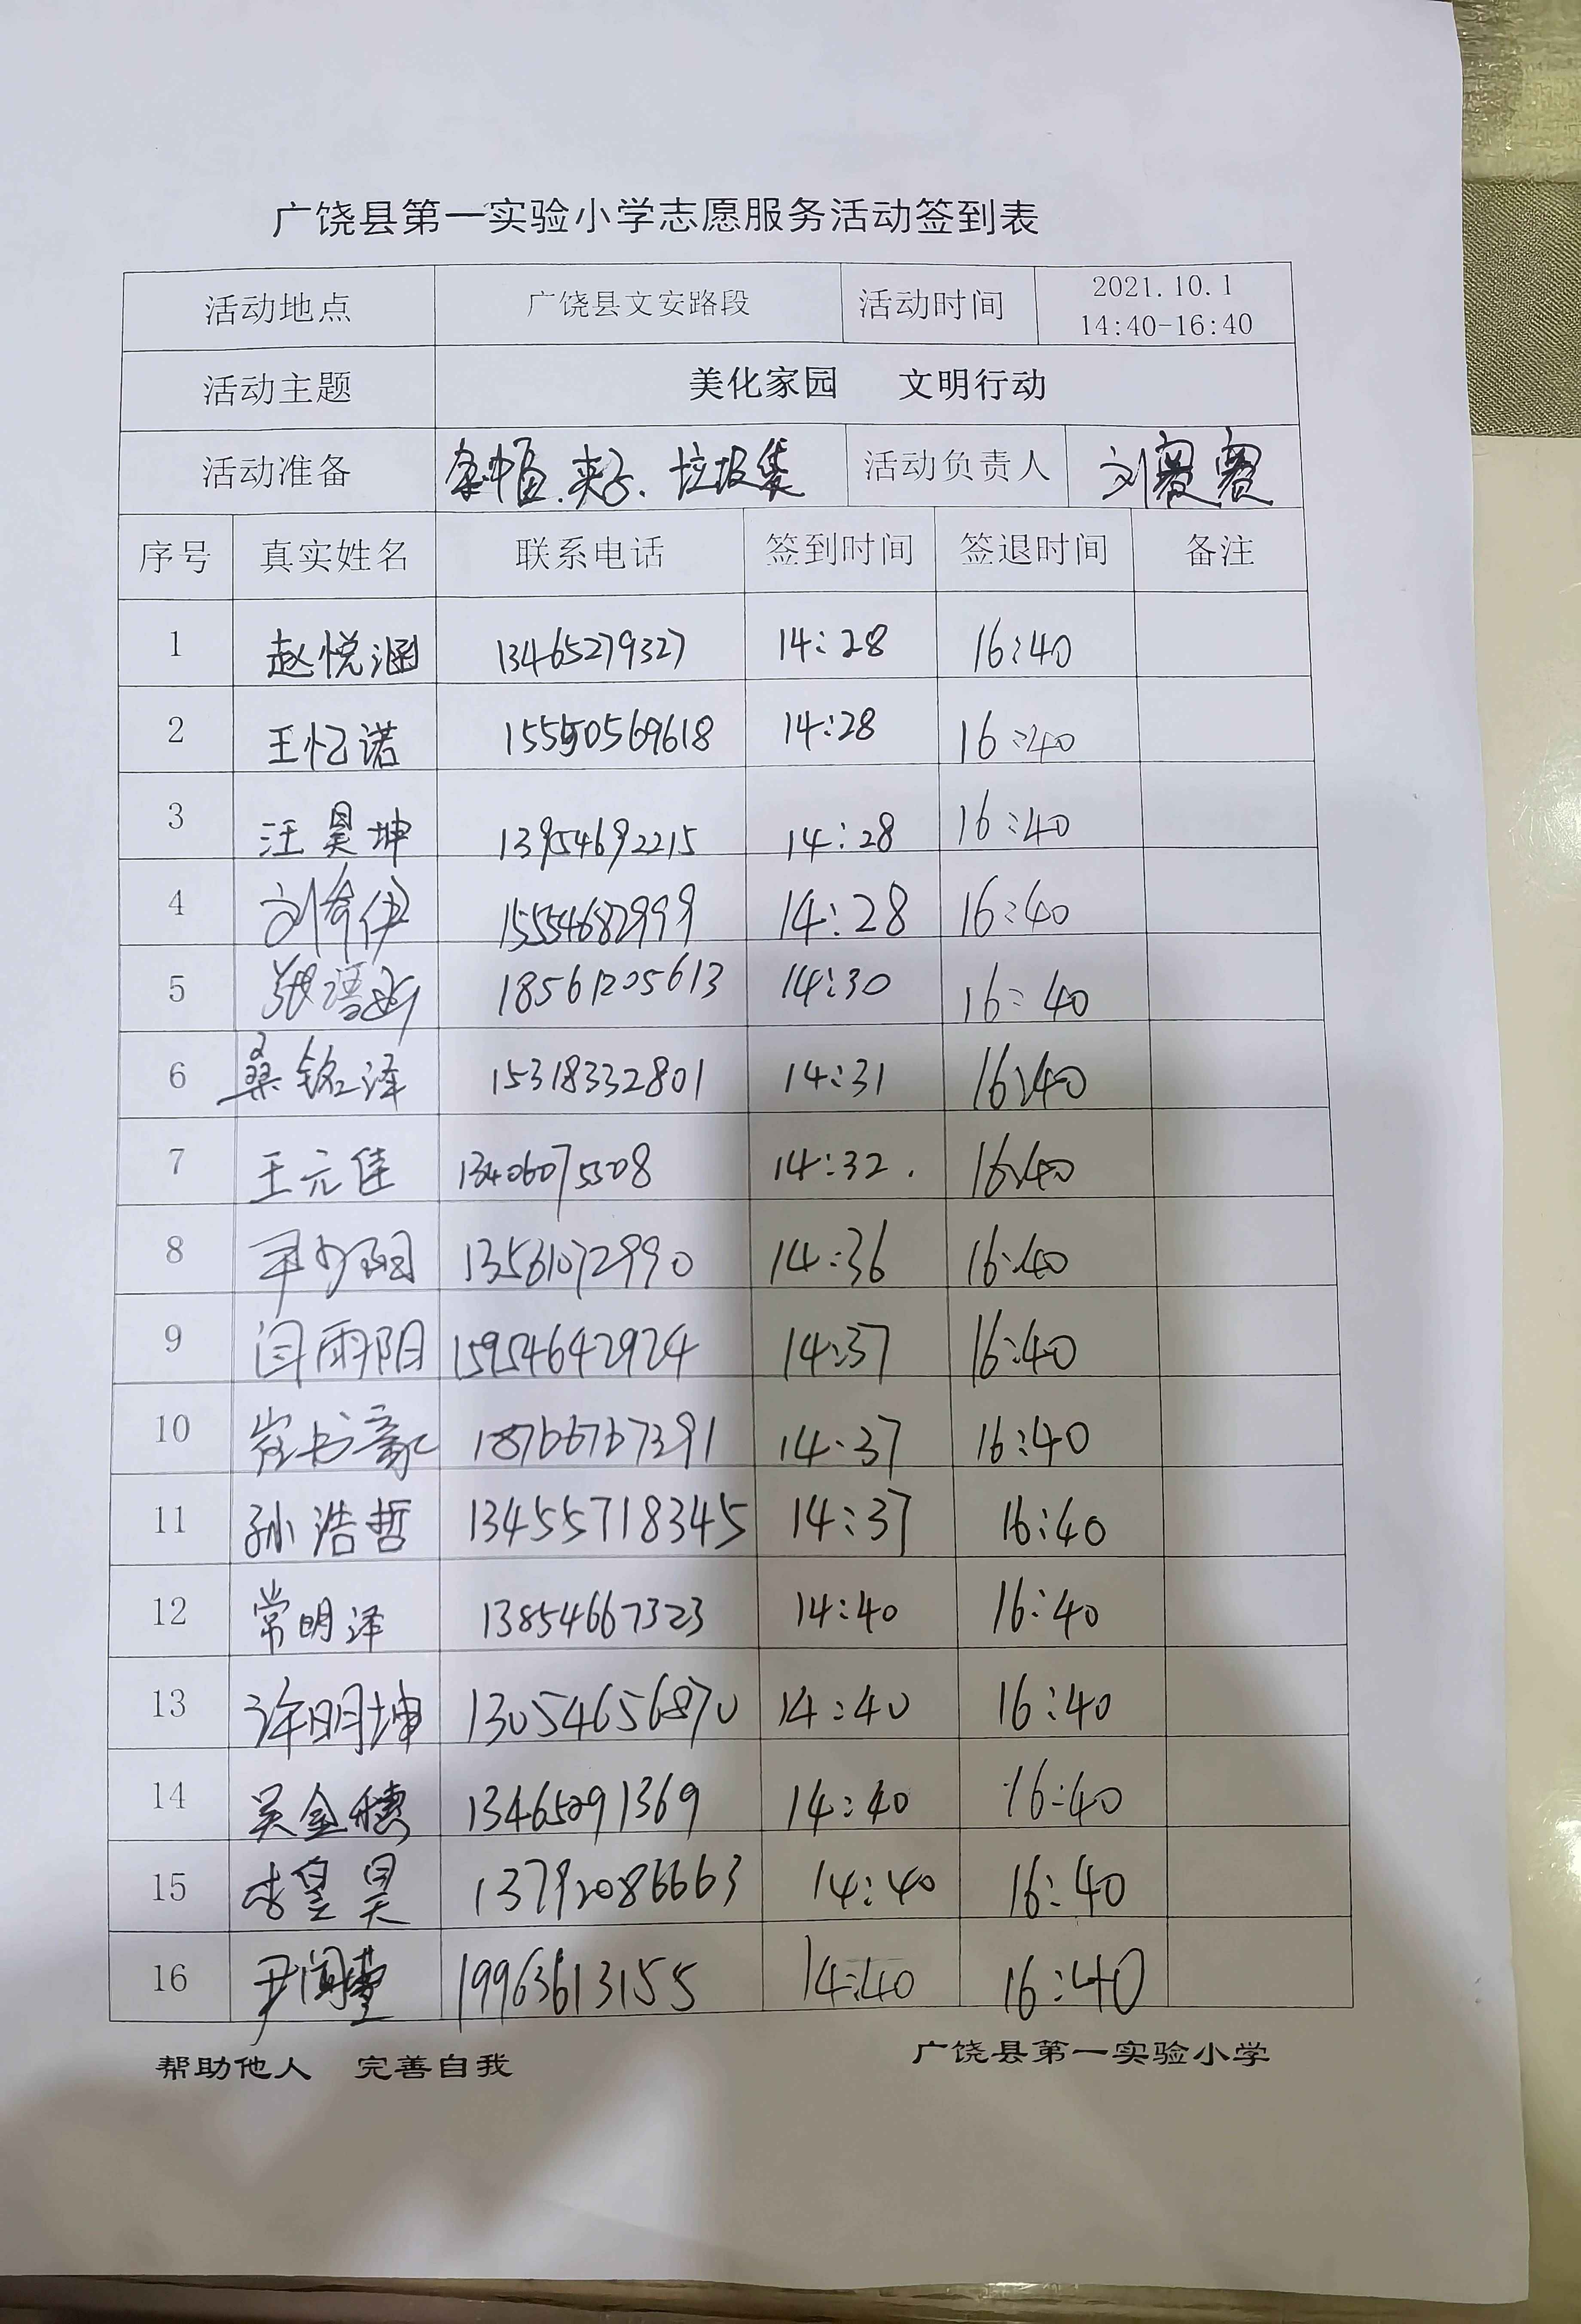 广饶县第一实验小学志愿服务活动签到表
活动地点 广饶县文安路段 活动时间 2021.10.1 14:40-16:40
活动主题 美化家园 文明行动
活动准备 夹子、垃圾袋 活动负责人
序号 真实姓名 联系电话 签到时间 签退时间 备注
1 赵悦涵 13465279327 14:28 16:40
2 王忆诺 15550569618 14:28 16:40
3 汪昊坤 13954692215 14:28 16:40
4 15554682999 14:28 16:40
5 18561205613 14:30 16:40
6 桑铭泽 15318332801 14:31 16:40
7 王元佳 13406075508 14:32 16:40
8 13561072990 14:36 16:40
9 闫雨阳 15954642924 14:37 16:40
10 崔书豪 18766767391 14:37 16:40
11 孙浩哲 13455718345 14:37 16:40
12 常明泽 13854667323 14:40 16:40
13 许明坤 13054656870 14:40 16:40
14 吴金穗 13465291369 14:40 16:40
15 李昱昊 13792086663 14:40 16:40
16 19963613155 14:40 16:40
帮助他人 完善自我 广饶县第一实验小学